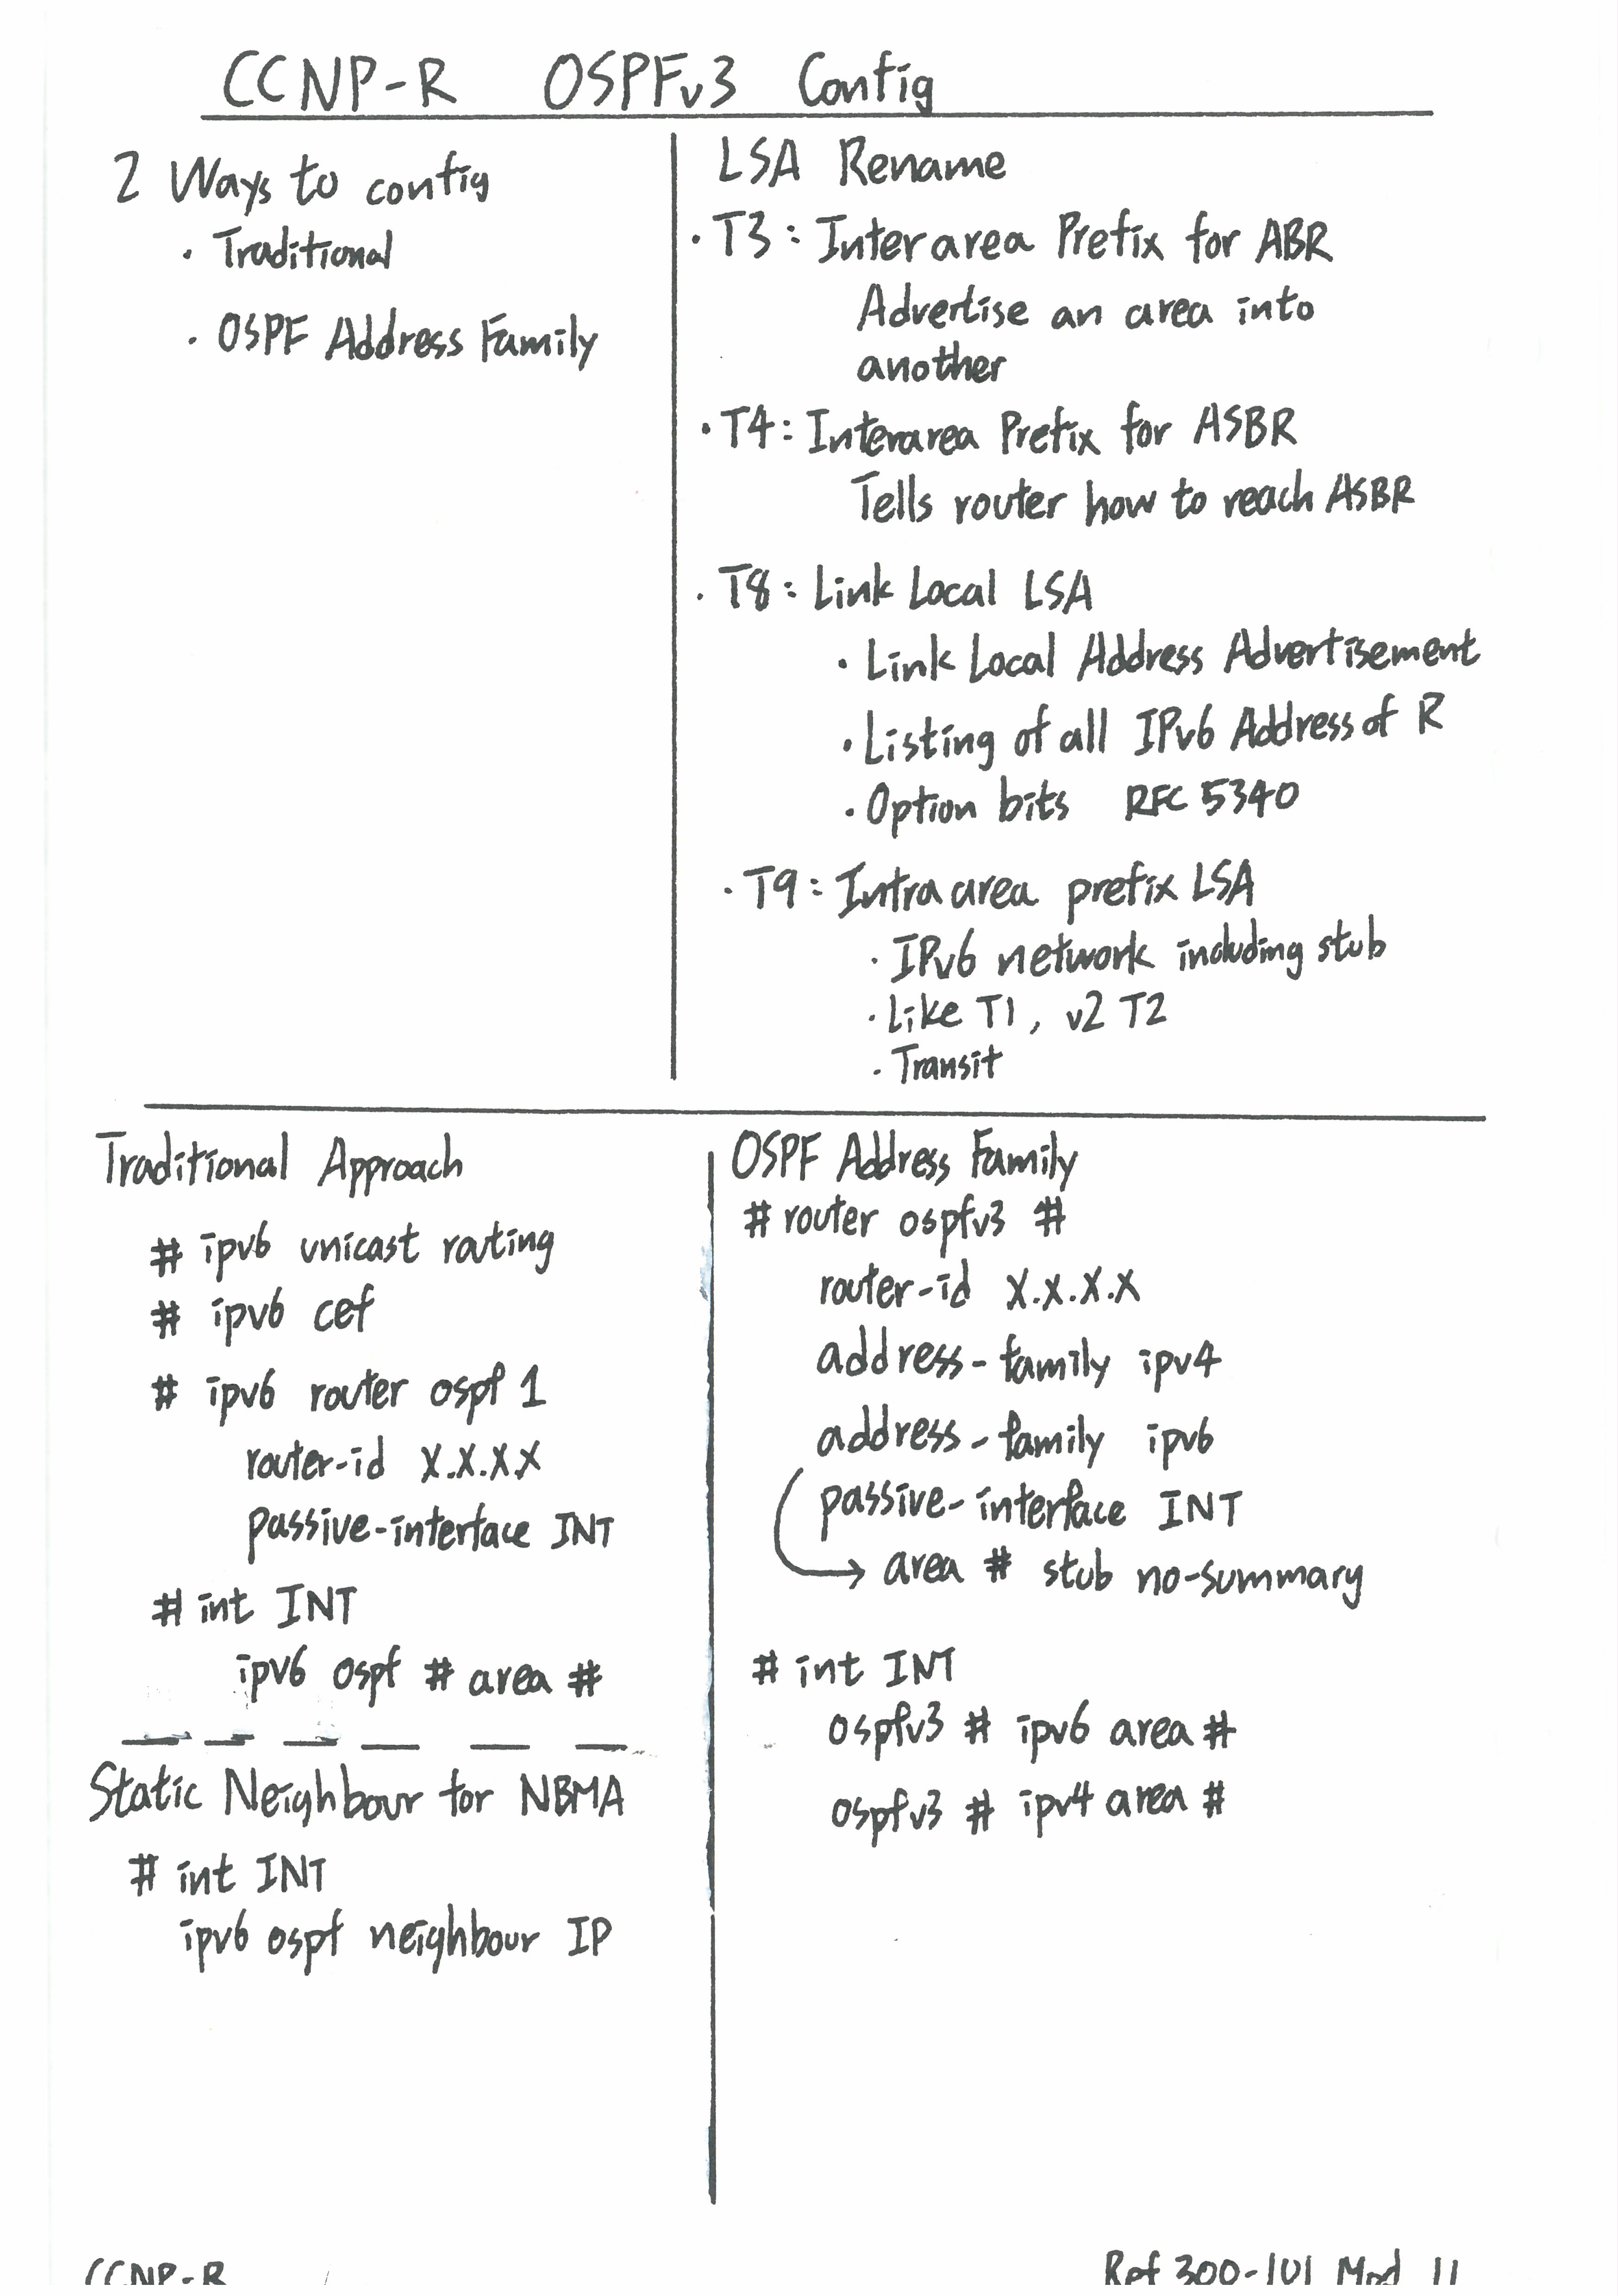 CCNP-R OSPFv3 Config
2 Ways to config
· Traditional
· OSPF Address Family
LSA Rename
· T3: Interarea Prefix for ABR
Advertise an area into
another
· T4: Interarea Prefix for ASBR
Tells router how to reach ASBR
· T8: Link Local LSA
· Link Local Address Advertisement
· Listing of all IPv6 Address of R
· Option bits RFC 5340
· T9: Intra area prefix LSA
· IPv6 network including stub
· Like T1, v2 T2
· Transit
Traditional Approach
# ipv6 unicast routing
# ipv6 cef
# ipv6 router ospf 1
router-id X.X.X.X
passive-interface INT
# int INT
ipv6 ospf # area #
Static Neighbour for NBMA
# int INT
ipv6 ospf neighbour IP
OSPF Address Family
# router ospfv3 #
router-id X.X.X.X
address-family ipv4
address-family ipv6
passive-interface INT
area # stub no-summary
# int INT
ospfv3 # ipv6 area #
ospfv3 # ipv4 area #
CCNP-R
Ref 300-101 Mod 11